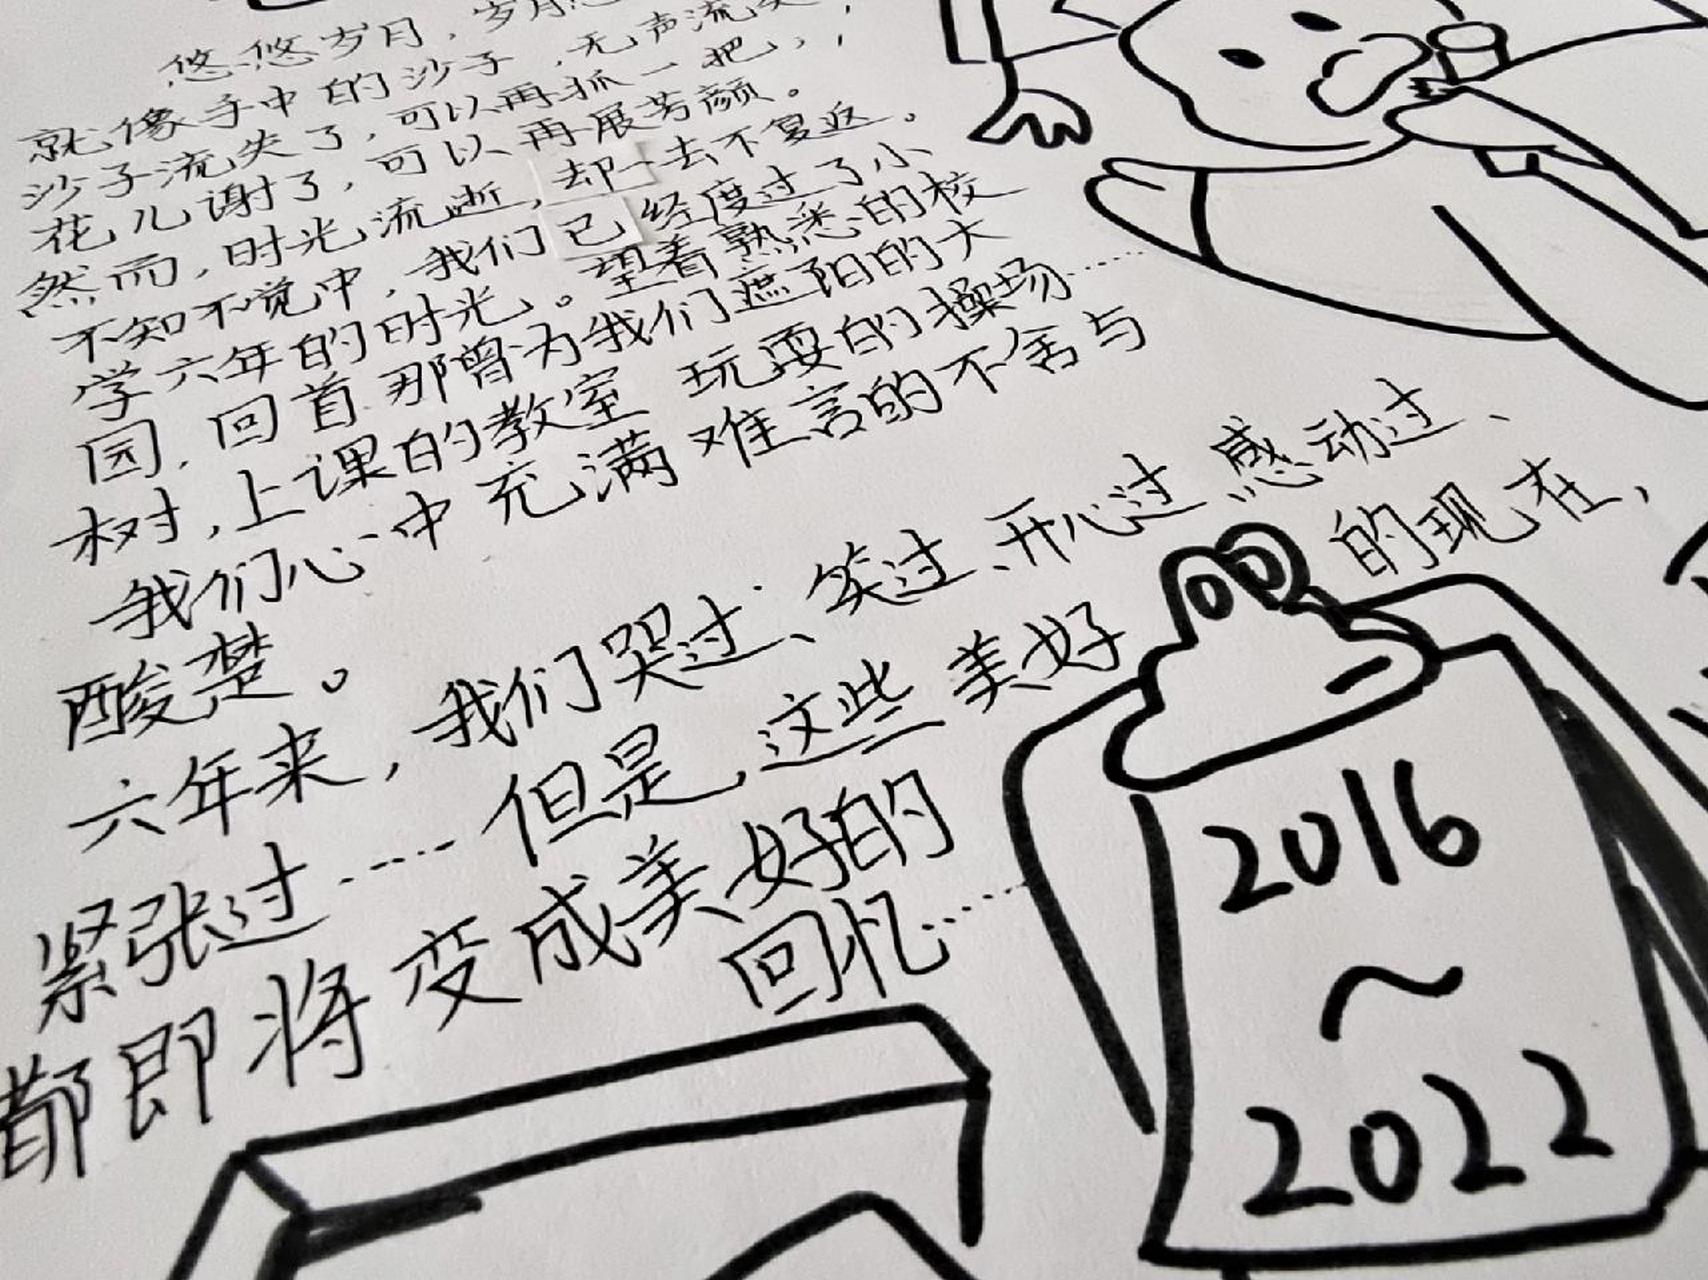 悠悠岁月，岁月
就像手中的沙子，无声流失
沙子流失了，可以再抓一把，
花儿谢了，可以再展芳颜。
然而，时光流逝，却一去不复返。
不知不觉中，我们已经度过了小
学六年的时光。望着熟悉的校
园，回首那曾为我们遮阳的大
树，上课的教室 玩耍的操场……
我们心中充满难言的不舍与
酸楚。
六年来，我们哭过、笑过、开心过、感动过、
紧张过……但是，这些美好的现在，
都即将变成美好的
回忆……
2016
~
2022